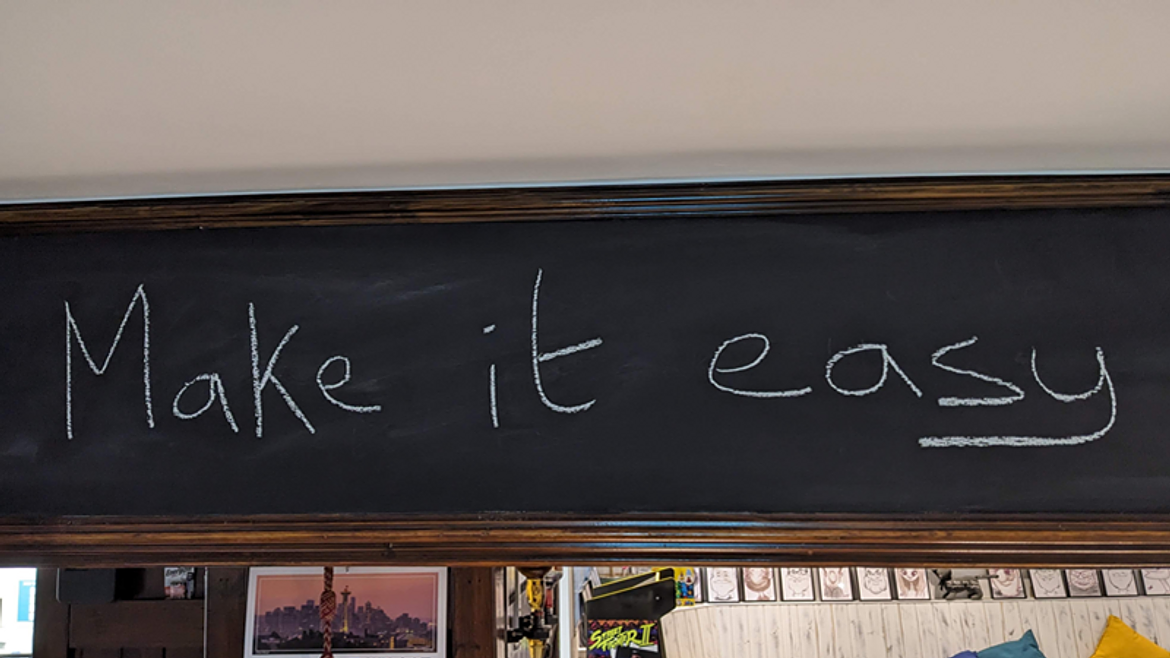 Make it easy
STREET FIGHTER II